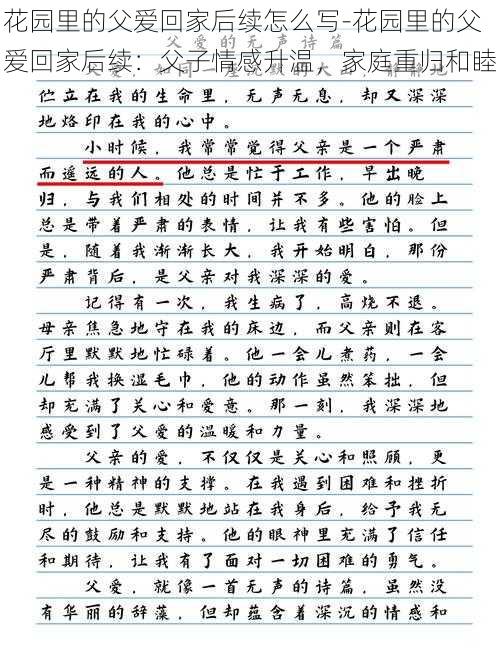 花园里的父爱回家后续怎么写-花园里的父
爱回家后续：父子情感升温，家庭重归和睦
父爱的无声诗篇
伫立在我的生命里，无声无息，却又深深
地烙印在我的心中。
小时候，我常常觉得父亲是一个严肃
而遥远的人。他总是忙于工作，早出晚
归，与我们相处的时间并不多。他的脸上
总是带着严肃的表情，让我有些害怕。但
是，随着我渐渐长大，我开始明白，那份
严肃背后，是父亲对我深深的爱。
记得有一次，我生病了，高烧不退。
母亲焦急地守在我的床边，而父亲则在客
厅里默默地忙碌着。他一会儿煮药，一会
儿帮我换湿毛巾，他的动作虽然笨拙，但
却充满了关心和爱意。那一刻，我深深地
感受到了父爱的温暖和力量。
父亲的爱，不仅仅是关心和照顾，更
是一种精神的支撑。在我遇到困难和挫折
时，他总是默默地站在我身后，给予我无
尽的鼓励和支持。他的眼神里充满了信任
和期待，让我有了面对一切困难的勇气。
父爱，就像一首无声的诗篇，虽然没
有华丽的辞藻，但却蕴含着深沉的情感和